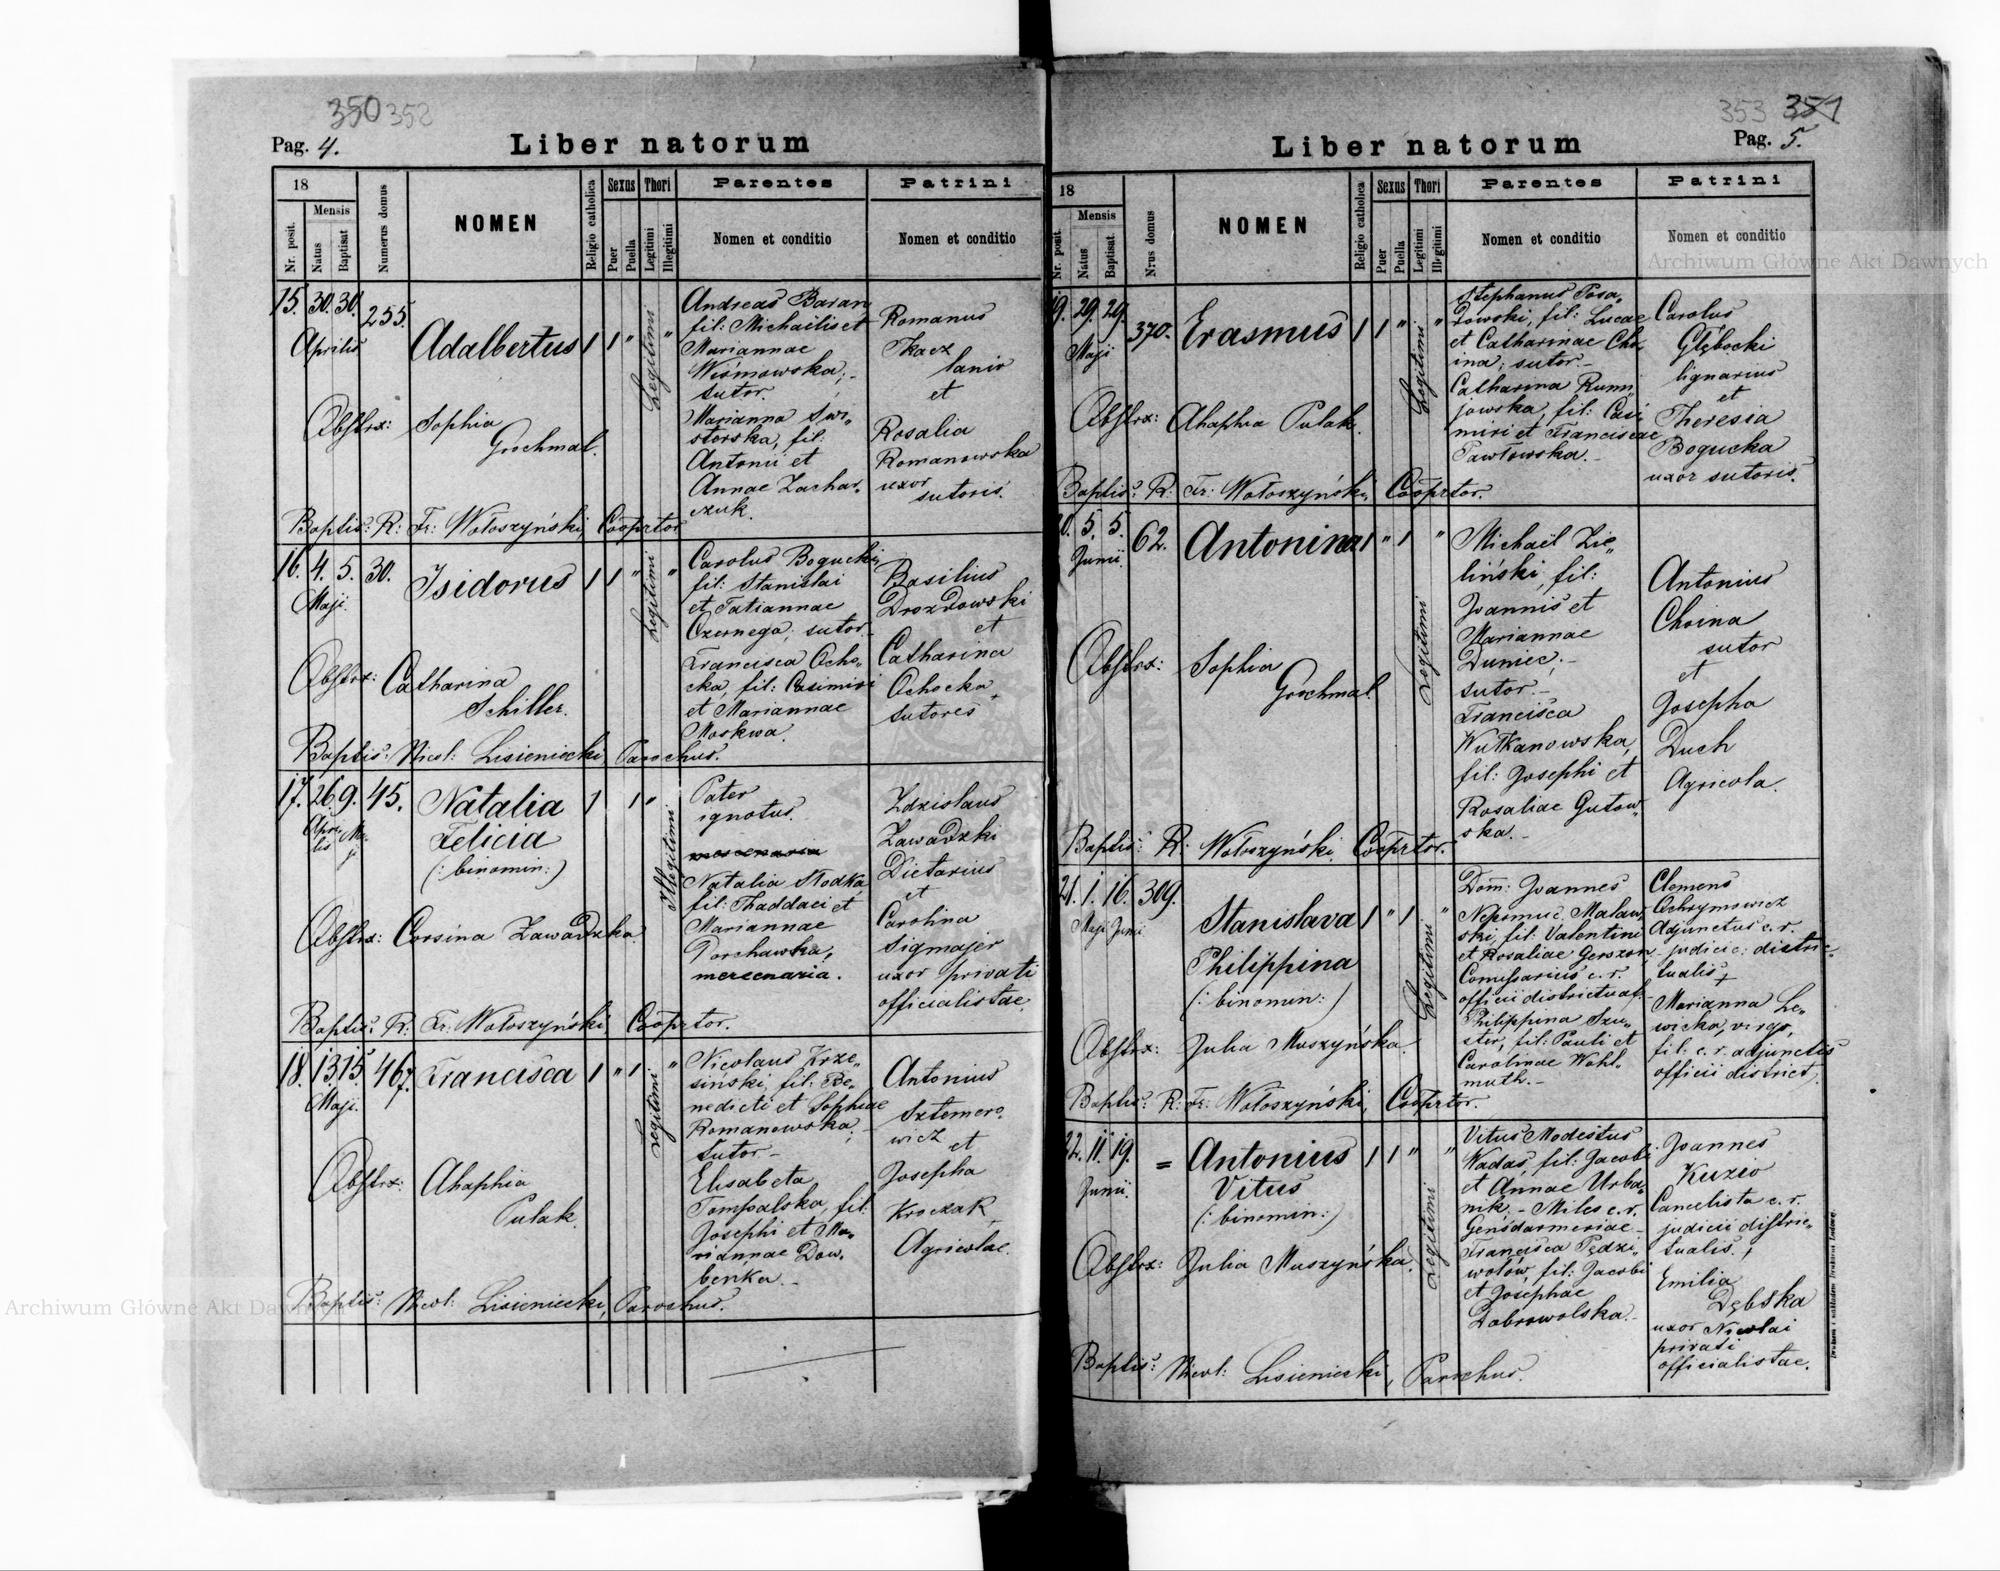 350 352
Pag. 4.
Liber natorum
18
Nr. posit.
Mensis
Natus
Baptisat
Numerus domus
NOMEN
Religio catholica
Sexus
Puer
Puella
Thori
Legitimi
Illegitimi
Parentes
Nomen et conditio
Patrini
Nomen et conditio
15. 30. 30. 255.
Aprilis
Adalbertus 1 1 " Legitimi "
Andreas Baran
fil: Michaëlis et
Mariannae
Wiśniowska; -
sutor.
Marianna Swi„
storska, fil.
Antonii et
Annae Zachar„
czuk.
Romanus
Tkacz
lanio
et
Rosalia
Romanowska
uxor
sutoris.
Obstrx: Sophia
Grochmal.
Baptis: R: Fr: Wołoszyński, Cooprtor
16. 4. 5. 30.
Maji.
Isidorus 1 1 " Legitimi "
Carolus Bogucki,
fil: Stanislai
et Tatiannae
Czernega; sutor -
Francisca Ocho„
cka, fil: Casimiri
et Mariannae
Moskwa.
Basilius
Drozdowski
et
Catharina
Ochocka
sutores
Obstrx: Catharina
Schiller.
Baptis: Nicol: Lisieniecki, Parochus.
17. 26. 9. 45.
Aprilis Maj
Natalia
Felicia
(: binomin:)
1 1 " Illegitimi
Pater
ignotus.
mercenaria
Natalia Słodka,
fil: Thaddaei et
Mariannae
Dorchawka,
mercenaria.
Zdzislaus
Zawadzki
Dietarius
et
Carolina
Sigmajer
uxor privati
officialistae.
Obstrx: Corsina Zawadzka
Baptis: R: Fr: Wołoszyński, Cooprtor.
18. 13. 15. 467.
Maji.
Francisca 1 " 1 Legitimi "
Nicolaus Krze„
siński, fil: Be„
nedicti et Sophiae
Romanowska; -
sutor -
Elisabeta
Tompalska, fil:
Josephi et Ma„
riannae Dow„
benka. -
Antonius
Sztemero„
wicz
et
Josepha
Kroczak
Agricolae.
Obstrx: Ahaphia
Pulak.
Baptis: Nicol: Lisieniecki, Parochus.
353 351
Pag. 5.
Liber natorum
18
Nr. posit.
Mensis
Natus
Baptisat.
Nrus domus
NOMEN
Religio catholica
Sexus
Puer
Puella
Thori
Legitimi
Illegitimi
Parentes
Nomen et conditio
Patrini
Nomen et conditio
19. 29. 29. 370.
Maji
Erasmus 1 1 " Legitimi "
Stephanus Posa„
dowski, fil: Lucae
et Catharinae Cho„
ina; sutor. -
Catharina Rumi„
jowska, fil: Casi„
miri et Franciscae
Pawłowska. -
Carolus
Głębocki
lignarius
et
Theresia
Bogucka
uxor sutoris.
Obstrx: Ahaphia Pulak.
Baptis: R: Fr: Wołoszyński, Cooprtor.
20. 5. 5. 62.
Junii.
Antonina 1 " 1 Legitimi "
Michaël Zie„
liński, fil:
Joannis et
Mariannae
Duniec; -
sutor. -
Francisca
Wutkanowska,
fil: Josephi et
Rosaliae Gutow„
ska. -
Antonius
Choina
sutor
et
Josepha
Duch
Agricola.
Obstrx: Sophia
Grochmal.
Baptis: R: Wołoszyński, Cooprtor.
21. 1. 16. 309.
Maji Junii
Stanislava
Philippina
(: binomin:)
1 " 1 Legitimi "
Dom: Joannes
Nepomuc. Malaw„
ski, fil: Valentini
et Rosaliae Gerszon
Comissarius c. r.
officii districtual.
Philippina Szu„
ster, fil: Pauli et
Carolinae Wohl„
muth. -
Clemens
Ochrymowicz
Adjunctus c. r.
judicii distric„
tualis +
Marianna Le„
wicka, virgo,
fil: c. r. adjunctis
officii district.
Obstrx: Julia Muszyńska.
Baptis: R: Fr: Wołoszyński, Cooprtor.
22. 11. 19. =
Junii.
Antonius
Vitus
(: binomin:)
1 1 " Legitimi "
Vitus Modestus
Wadas, fil: Jacobi
et Annae Urba„
nik, - Miles c. r.
Gensdarmeriae -
Francisca Pędzi„
wołów, fil: Jacobi
et Josephae
Dobrowolska. -
Joannes
Kuzio
Cancelista c. r.
judicii distric„
tualis. +
Emilia
Dębska
uxor Nicolai
privati
officialistae.
Obstrx: Julia Muszyńska.
Baptis: Nicol: Lisieniecki, Parochus.
Archiwum Główne Akt Dawnych
Archiwum Główne Akt Dawnych